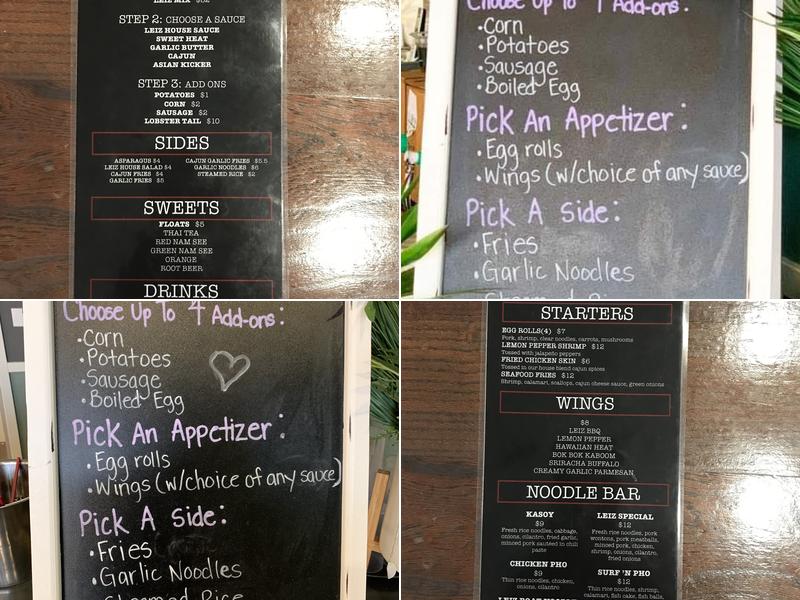 LEIZ MIX $62
STEP 2: CHOOSE A SAUCE
LEIZ HOUSE SAUCE
SWEET HEAT
GARLIC BUTTER
CAJUN
ASIAN KICKER
STEP 3: ADD ONS
POTATOES $1
CORN $2
SAUSAGE $2
LOBSTER TAIL $10
SIDES
ASPARAGUS $4
LEIZ HOUSE SALAD $4
CAJUN FRIES $4
GARLIC FRIES $5
CAJUN GARLIC FRIES $5.5
GARLIC NOODLES $6
STEAMED RICE $2
SWEETS
FLOATS $5
THAI TEA
RED NAM SEE
GREEN NAM SEE
ORANGE
ROOT BEER
DRINKS
Choose Up To 4 Add-ons:
•Corn
•Potatoes
•Sausage
•Boiled Egg
Pick An Appetizer:
•Egg rolls
•Wings (w/choice of any sauce)
Pick A Side:
•Fries
•Garlic Noodles
Choose Up To 4 Add-ons:
•Corn
•Potatoes
•Sausage
•Boiled Egg
Pick An Appetizer:
•Egg rolls
•Wings (w/choice of any sauce)
Pick A Side:
•Fries
•Garlic Noodles
Steamed Rice
STARTERS
EGG ROLLS(4) $7
Pork, shrimp, clear noodles, carrots, mushrooms
LEMON PEPPER SHRIMP $12
Tossed with jalapeño peppers
FRIED CHICKEN SKIN $6
Tossed in our house blend cajun spices
SEAFOOD FRIES $12
Shrimp, calamari, scallops, cajun cheese sauce, green onions
WINGS
$8
LEIZ BBQ
LEMON PEPPER
HAWAIIAN HEAT
BOK BOK KABOOM
SRIRACHA BUFFALO
CREAMY GARLIC PARMESAN
NOODLE BAR
KASOY
$9
Fresh rice noodles, cabbage,
onions, cilantro, fried garlic,
minced pork sautéed in chili
paste
CHICKEN PHO
$9
Thin rice noodles, chicken,
onions, cilantro
LEIZ SPECIAL
$12
Fresh rice noodles, pork
wontons, pork meatballs,
minced pork, chicken,
shrimp, onions, cilantro,
fried onions
SURF 'N PHO
$12
Thin rice noodles, shrimp,
calamari, fish cake, fish balls,